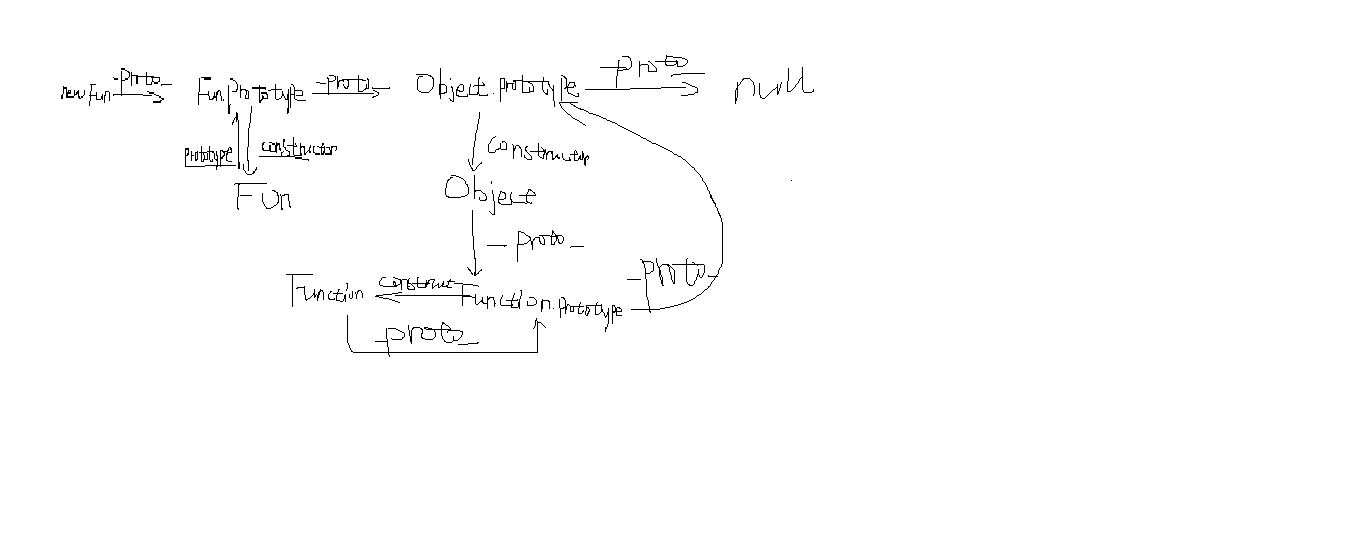 new Fun -proto- Fun.prototype -proto- Object.prototype -proto- null
prototype constructor constructor
Fun Object
-proto-
Function construct Function.prototype -proto-
-proto-